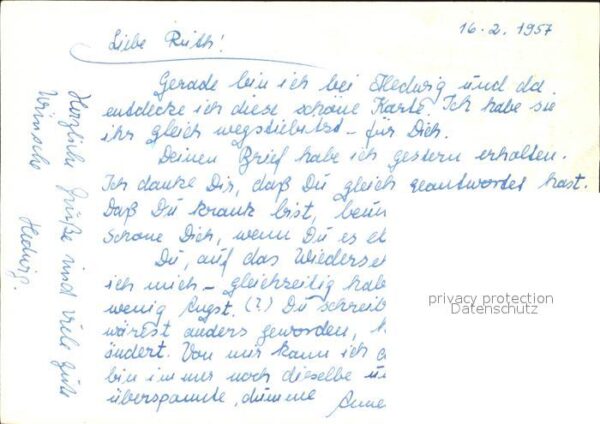 16.2.1957
Liebe Ruth!
Gerade bin ich bei Hedwig und da
entdecke ich diese schöne Karte. Ich habe sie
ihr gleich wegstiebitzt - für Dich.
Deinen Brief habe ich gestern erhalten.
Ich danke Dir, daß Du gleich geantwortet hast.
Daß Du krank bist, beun
Schone Dich, wenn Du es
Du, auf das Wiederse
ich mich - gleichzeitig hab
wenig Angst. (?) Du schreib
wärest anders geworden,
ändert. Von mir kann ich
bin immer noch dieselbe u
überspannte, dumme Anne
Herzliche Grüße und viele gute
Wünsche Hedwig.
privacy protection
Datenschutz